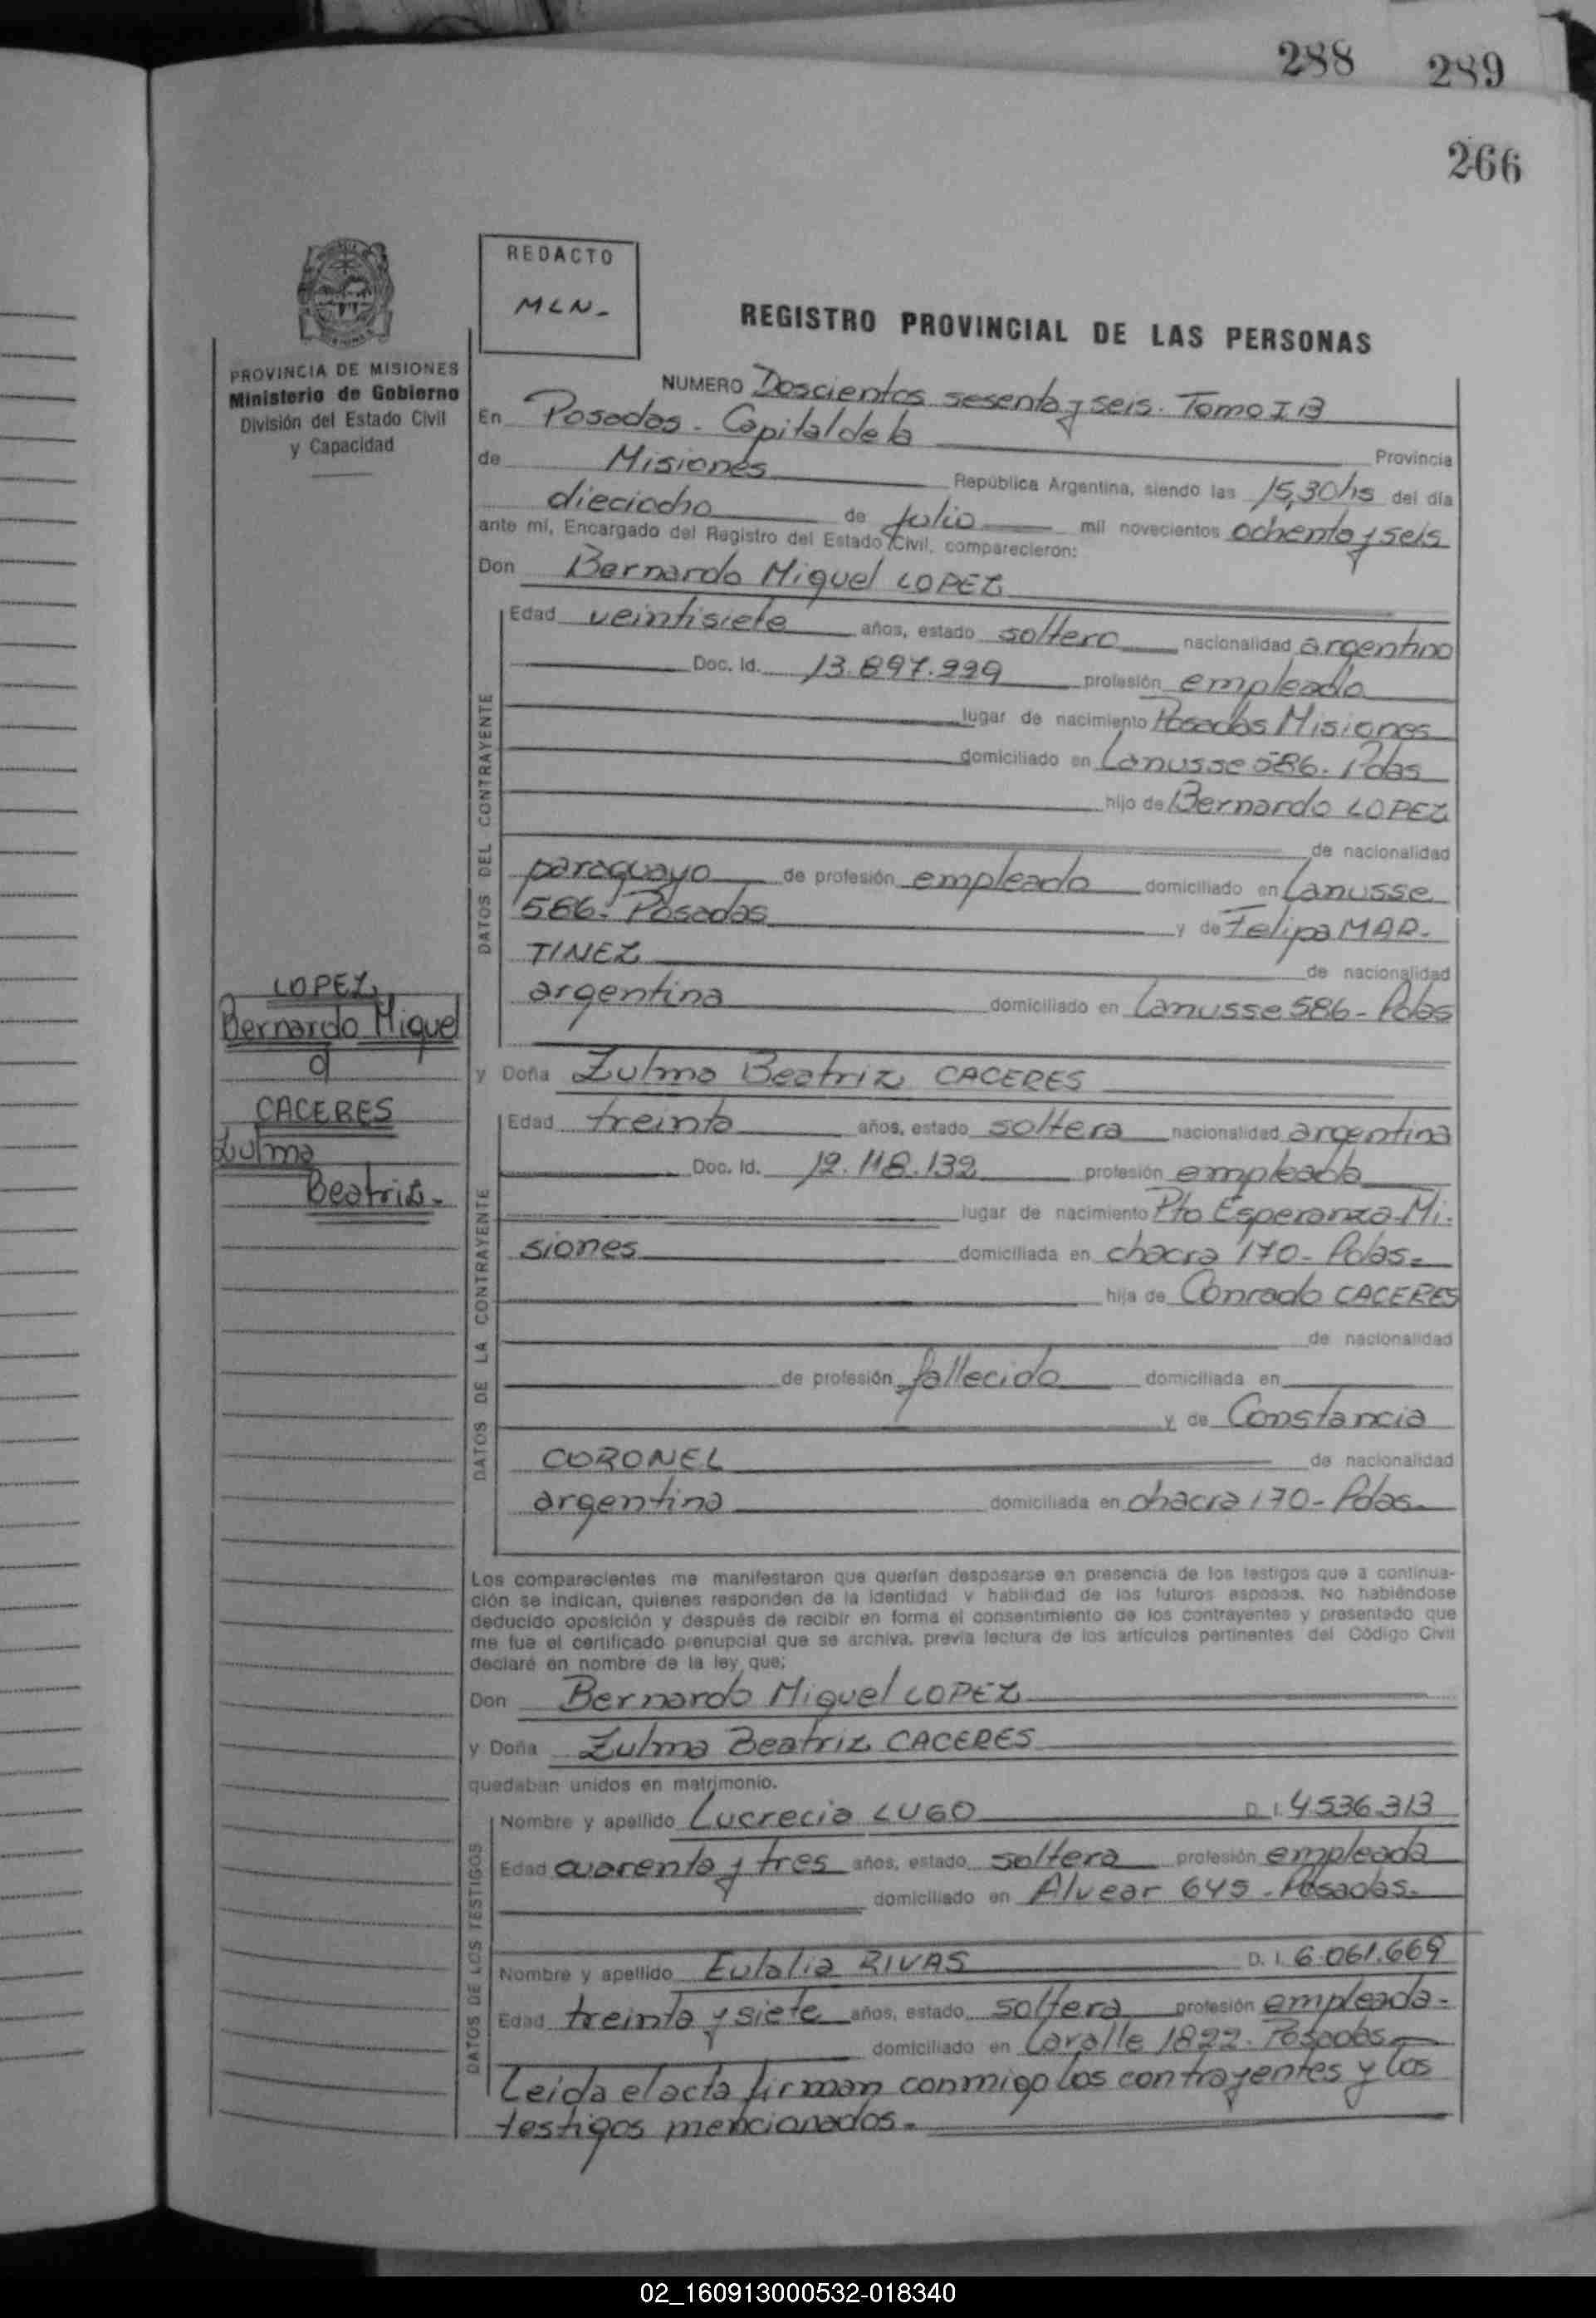 288 289
266
REDACTO
MLN-
REGISTRO PROVINCIAL DE LAS PERSONAS
PROVINCIA DE MISIONES
Ministerio de Gobierno
División del Estado Civil
y Capacidad
NUMERO Doscientos sesenta y seis. Tomo I B
En Posadas. Capital de la Provincia
de Misiones República Argentina, siendo las 15,30 hs del día
dieciocho de julio mil novecientos ochenta y seis
ante mí, Encargado del Registro del Estado Civil, comparecieron:
Don Bernardo Miguel LOPEZ
DATOS DEL CONTRAYENTE
Edad veintisiete años, estado soltero nacionalidad argentino
Doc. Id. 13.897.999 profesión empleado
lugar de nacimiento Posadas Misiones
domiciliado en Lanusse 586. Pdas
hijo de Bernardo LOPEZ
de nacionalidad
paraguayo de profesión empleado domiciliado en Lanusse
586. Posadas y de Felipa MAR-
TINEZ de nacionalidad
argentina domiciliado en Lanusse 586- Pdas
LOPEZ
Bernardo Miguel
CACERES
Zulma
Beatriz.
y Doña Zulma Beatriz CACERES
DATOS DE LA CONTRAYENTE
Edad treinta años, estado soltera nacionalidad argentina
Doc. Id. 12.118.132 profesión empleada
lugar de nacimiento Pto Esperanza-Mi.
siones domiciliada en chacra 170- Pdas-
hija de Conrado CACERES
de nacionalidad
de profesión fallecido domiciliada en
y de Constancia
CORONEL de nacionalidad
argentina domiciliada en chacra 170- Pdas.
Los comparecientes me manifestaron que querían desposarse en presencia de los testigos que a continua-
ción se indican, quienes responden de la identidad y habilidad de los futuros esposos. No habiéndose
deducido oposición y después de recibir en forma el consentimiento de los contrayentes y presentado que
me fue el certificado prenupcial que se archiva, previa lectura de los artículos pertinentes del Código Civil
declaré en nombre de la ley que:
Don Bernardo Miguel LOPEZ
y Doña Zulma Beatriz CACERES
quedaban unidos en matrimonio.
DATOS DE LOS TESTIGOS
Nombre y apellido Lucrecia LUGO D. I. 4.536.313
Edad cuarenta y tres años, estado soltera profesión empleada
domiciliado en Alvear 645. Posadas.
Nombre y apellido Eulalia RIVAS D. I. 6.061.669
Edad treinta y siete años, estado soltera profesión empleada-
domiciliado en Lavalle 1822. Posadas
Leida el acta firman conmigo los contrayentes y los
testigos mencionados.
02_160913000532-018340